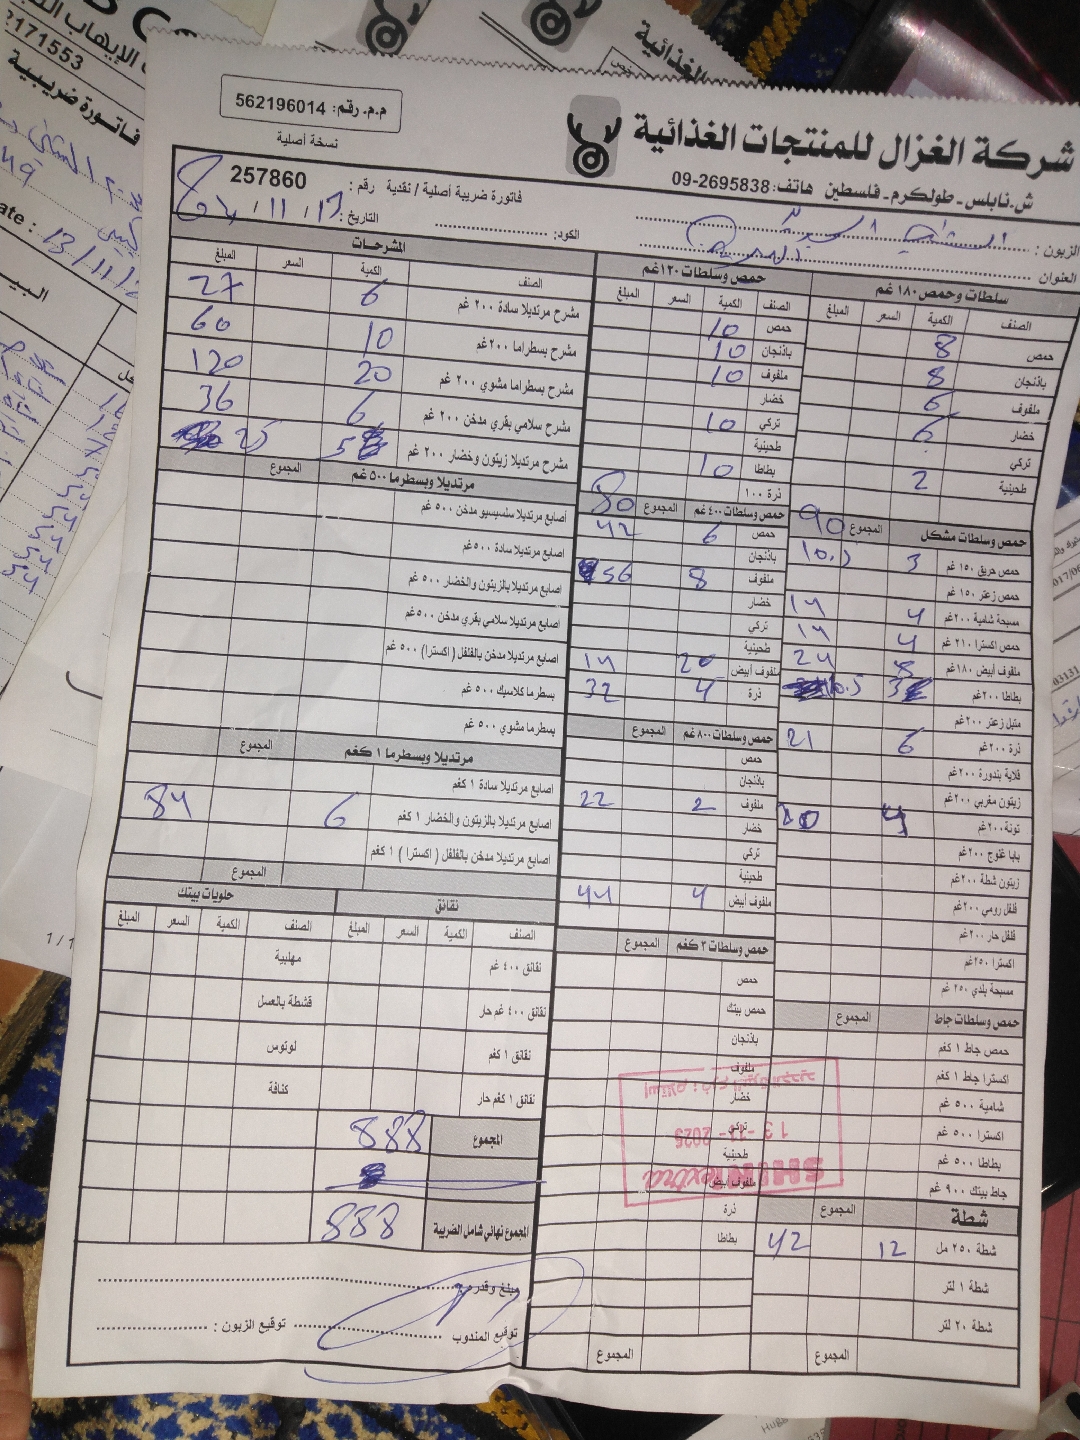 م.م. رقم: 562196014
نسخة أصلية
شركة الغزال للمنتجات الغذائية
ش.نابلس - طولكرم - فلسطين هاتف: 2695838-09
فاتورة ضريبة أصلية / نقدية رقم : 257860
الزبون :
العنوان
الكود:
التاريخ: 13 / 11 /
سلطات وحمص ١٨٠ غم
الصنف الكمية السعر المبلغ
حمص 8
باذنجان 8
ملفوف 6
خضار 6
تركي
طحينية 2
المجموع 90
حمص وسلطات مشكل
حمص حريق ١٥٠ غم 3 10.5
حمص زعتر ١٥٠ غم
مسبحة شامية ٢٠٠غم 4 14
حمص اكسترا ٢١٠ غم 4 14
ملفوف أبيض ١٨٠غم 8 24
بطاطا ٢٠٠غم 3 10.5
متبل زعتر ٢٠٠غم
ذرة ٢٠٠غم 6 21
قلاية بندورة ٢٠٠غم
زيتون مغربي ٢٠٠غم
تونة ٢٠٠غم 4 20
بابا غنوج ٢٠٠غم
زيتون شطة ٢٠٠غم
فلفل رومي ٢٠٠غم
فلفل حار ٢٠٠غم
اكسترا ٢٥٠غم
مسبحة بلدي ٢٥٠ غم
حمص وسلطات جاط المجموع
حمص جاط ١ كغم
اكسترا جاط ١ كغم
شامية ٥٠٠ غم
اكسترا ٥٠٠ غم
بطاطا ٥٠٠ غم
جاط بيتك ٩٠٠ غم
شطة المجموع
شطة ٢٥٠ مل 12 42
شطة ١ لتر
شطة ٢٠ لتر
المجموع
حمص وسلطات ١٢٠غم
الصنف الكمية السعر المبلغ
حمص 10
باذنجان 10
ملفوف 10
خضار
تركي 10
طحينية
بطاطا 10
ذرة ١٠٠
حمص وسلطات ٤٠٠ غم المجموع 80
حمص 6 42
باذنجان
ملفوف 8 56
خضار
تركي
طحينية
ملفوف أبيض 14
ذرة 4 32
حمص وسلطات ٨٠٠ غم المجموع
حمص
باذنجان
ملفوف 2 22
خضار
تركي
طحينية
ملفوف أبيض 4 44
حمص وسلطات ٣ كغم المجموع
حمص
حمص بيتك
باذنجان
ملفوف
خضار
تركي
طحينية
ملفوف أبيض
ذرة
بطاطا
المجموع
المشرحات
الصنف الكمية السعر المبلغ
مشرح مرتديلا سادة ٢٠٠ غم 6 27
مشرح بسطراما ٢٠٠غم 10 60
مشرح بسطراما مشوي ٢٠٠ غم 20 120
مشرح سلامي بقري مدخن ٢٠٠ غم 6 36
مشرح مرتديلا زيتون وخضار ٢٠٠ غم 5 25
مرتديلا وبسطرما ٥٠٠ غم المجموع
اصابع مرتديلا سلسيسيو مدخن ٥٠٠ غم
اصابع مرتديلا سادة ٥٠٠ غم
اصابع مرتديلا بالزيتون والخضار ٥٠٠ غم
اصابع مرتديلا سلامي بقري مدخن ٥٠٠ غم
اصابع مرتديلا مدخن بالفلفل ( اكسترا ) ٥٠٠ غم
بسطرما كلاسيك ٥٠٠ غم
بسطرما مشوي ٥٠٠ غم
مرتديلا وبسطرما ١ كغم المجموع
اصابع مرتديلا سادة ١ كغم
اصابع مرتديلا بالزيتون والخضار ١ كغم 6 84
اصابع مرتديلا مدخن بالفلفل ( اكسترا ) ١ كغم
المجموع
نقانق
الصنف الكمية السعر المبلغ
نقانق ٤٠٠ غم
نقانق ٤٠٠ غم حار
نقانق ١ كغم
نقانق ١ كغم حار
حلويات بيتك
الصنف الكمية السعر المبلغ
مهلبية
قشطة بالعسل
لوتوس
كنافة
المجموع 888
المجموع نهائي شامل الضريبة 888
مبلغ وقدره
توقيع المندوب
توقيع الزبون :
SHINI extra
13-11-2025
2171553
فاتورة ضريبية
13/11/
الغذائية